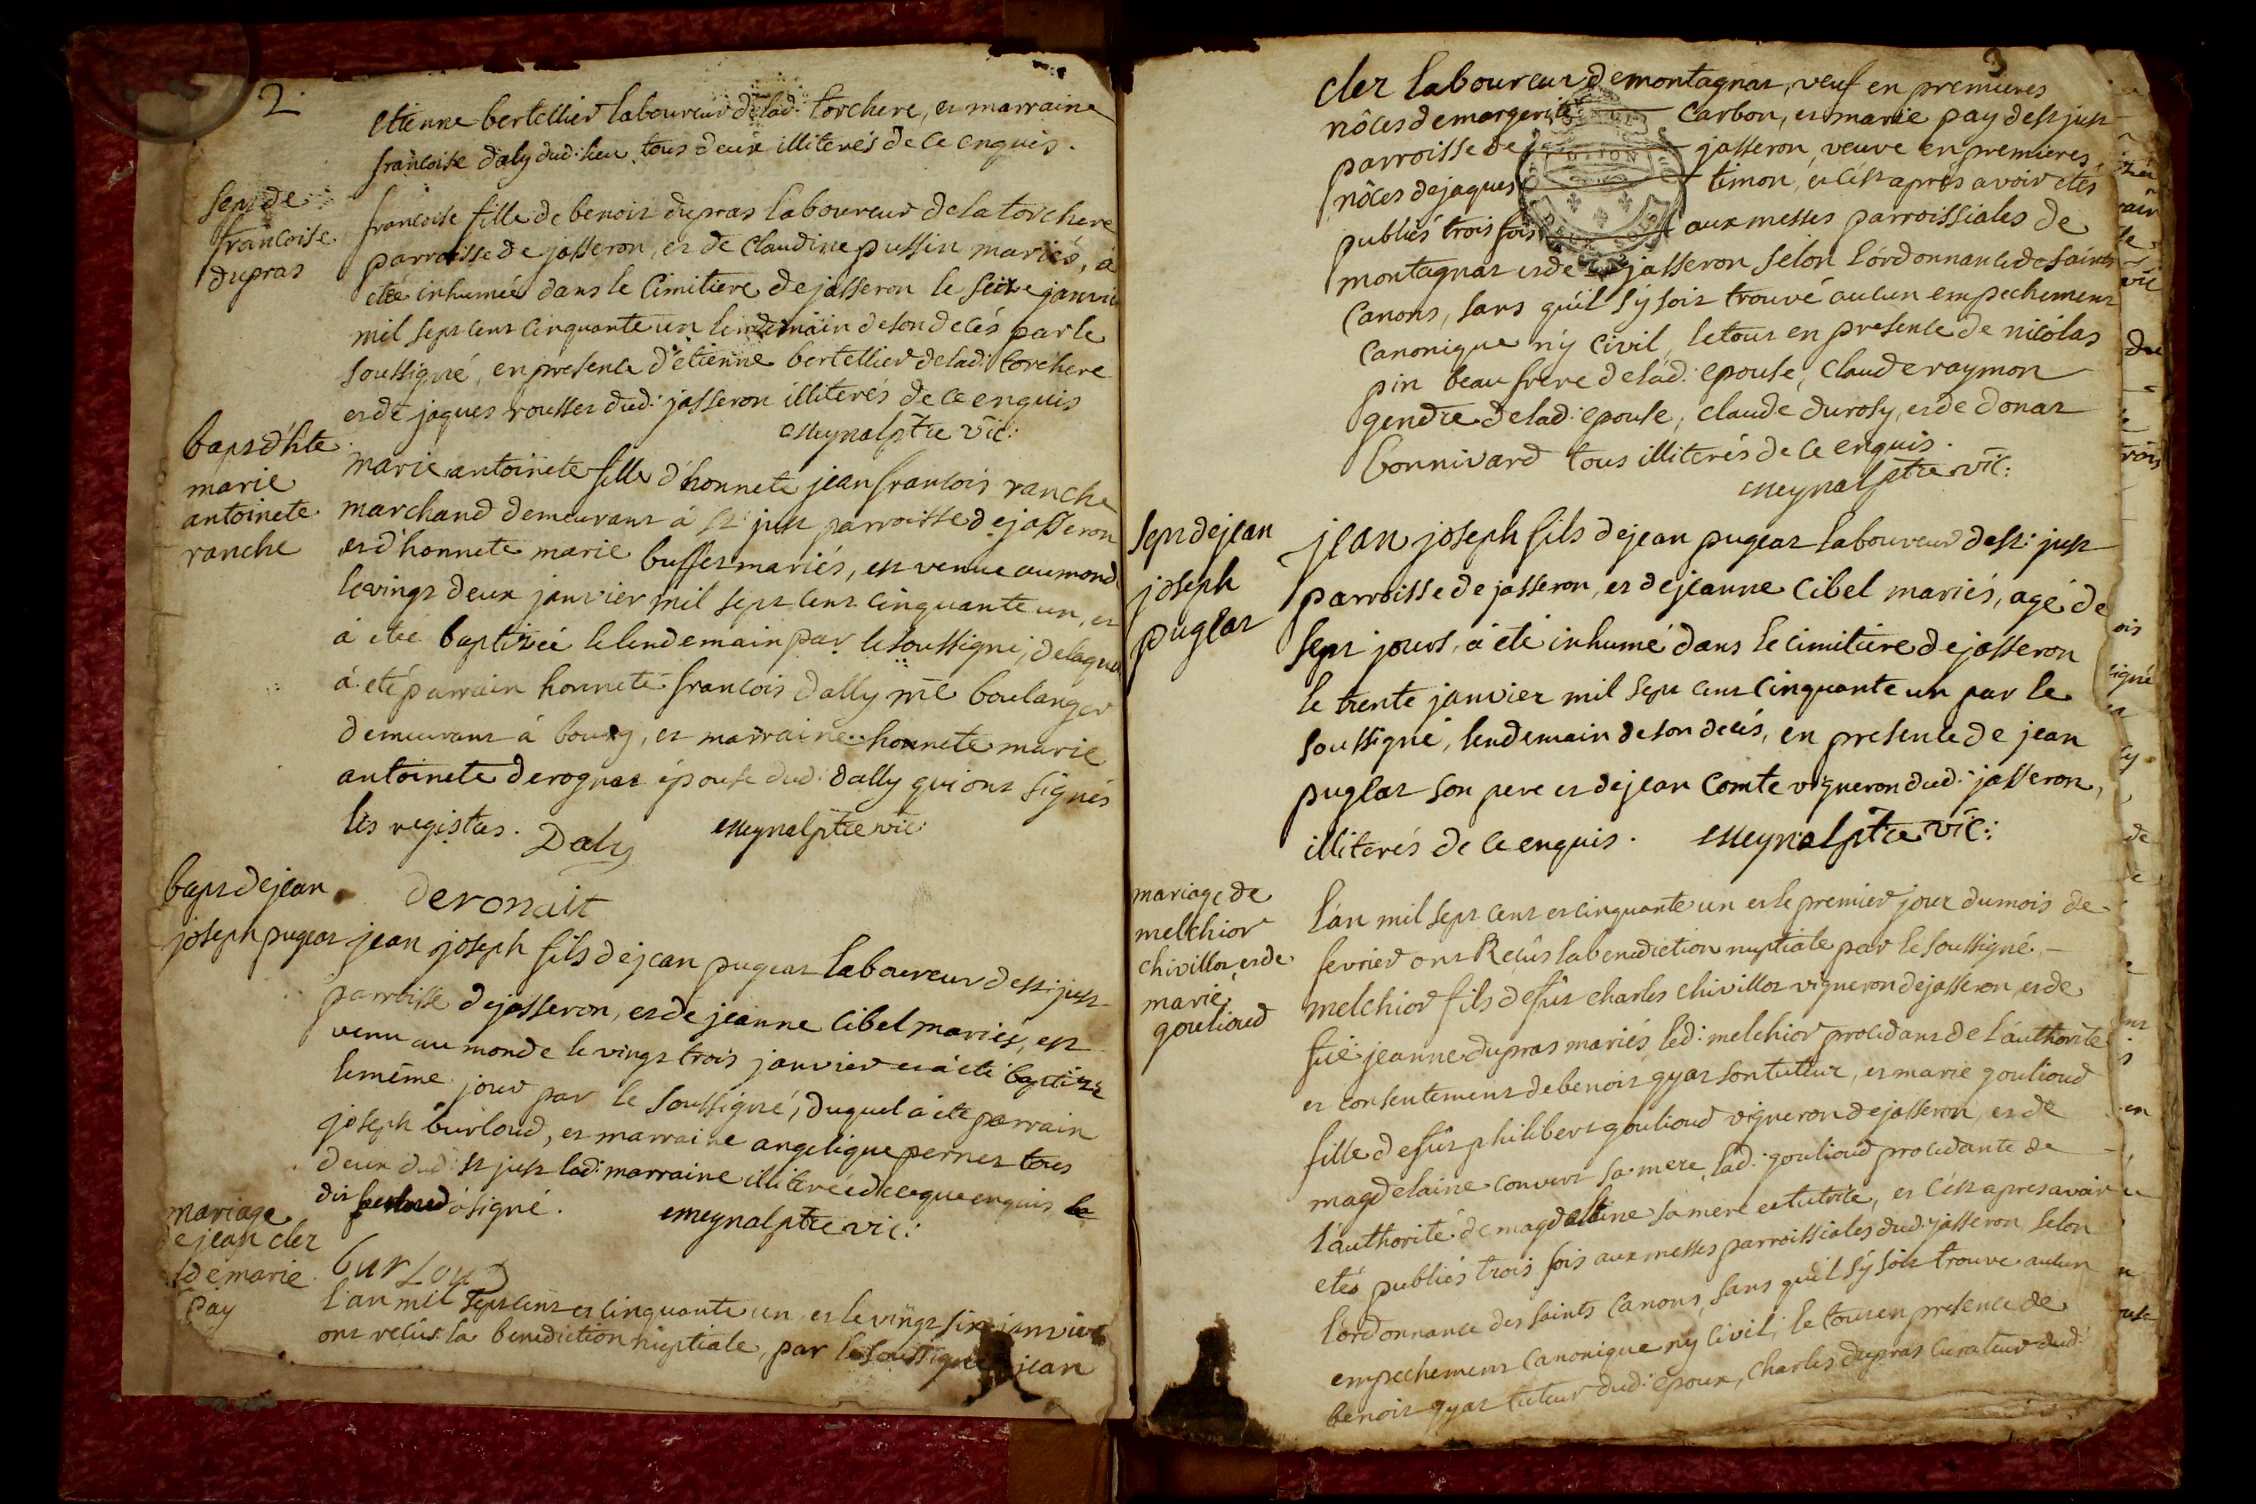 2
etienne bertellier laboureur de lad: torchere, et marraine
francoise daly dud: lieu tous deux illiterés de ce enquis.
sept de
francoise
dupras
francoise fille de benoit dupras laboureur de la torchere
parroisse de jasseron, et de claudine pussin mariés, á
eteé inhumeé dans le cimitiere de jasseron le seize janvie
mil sept cent cinquante un lendemain de son decés par le
soussigné, en presence d'etienne bertellier de lad: torchere
et de jaques rousset dud: jasseron illiterés de ce enquis
Meynal ptre vic:
bapt d'hte
marie
antoinete
ranche
marie antoinete fille d'honnete jean francois ranche
marchand demeurant á st just parroisse de jasseron
et d'honnete marie buffet mariés, est venue au monde
le vingt deux janvier mil sept cent cinquante un, et
á eteé baptizeé le lendemain par le soussigné, de laquel
á eté parrain honnete francois dally me boulanger
demeurant á bourg, et marraine honnete marie
antoinete derognat épouse dud: dally qui ont signés
les registes.
Daly
Meynal ptre vic:
deronait
bapt de jean
joseph pugeat
jean joseph fils de jean pugeat laboureur de st: just
parroisse de jasseron, et de jeanne cibel mariés, est
venu au monde le vingt trois janvier et á eté baptizé
le même jour par le soussigné, duquel á eté parrain
joseph burloud, et marraine angelique pernet tous
deux dud: st just lad: marraine illitereé de ce que enquis
dit burloud á signé.
Meynal ptre vic:
mariage
de jean clez
et de marie
pay
burLoud
l'an mil sept cent et cinquante un et le vingt six janvier
ont recûs la benediction nuptiale, par le soussigné jean
3
clez laboureur de montagnat, veuf en premieres
nôces de margerite carbon, et marie pay de st just
parroisse de jasseron, veuve en premieres
nôces de jaques timon, et c'est aprés avoir etés
publiés trois fois aux messes parroissiales de
DIJON
DEUX SOLS
montagnat et de jasseron selon l'órdonnance de saints
canons, sans qu'il s'y soit trouvé aucun empechement
canonique n'y civil, le tout en presence de nicólas
pin beau frere de lad: epouse, claude raymon
gendre de lad: epouse, claude durosy, et de donat
bonnivard tous illiterés de ce enquis.
Meynal ptre vic:
sept de jean
joseph
puglat
jean joseph fils de jean pugeat laboureur de st: just
parroisse de jasseron, et de jeanne cibel mariés, agé de
sept jours, á eté inhumé dans le cimitiere de jasseron
le trente janvier mil sept cent cinquante un par le
soussigné, lendemain de son decés, en presence de jean
puglat son pere et de jean comte vigneron dud: jasseron,
illiterés de ce enquis. Meynal ptre vic:
mariage de
melchior
chivillot et de
marie
goulioud
l'an mil sept cent et cinquante un et le premier jour du mois de
fevrier ont Reçûs la benediction nuptiale par le soussigné
melchior fils de fût charles chivillot vigneron de jasseron, et de
fuë jeanne dupras mariés, led: melchior procedant de l'authorité
et consentement de benoit gyat son tuteur, et marie goulioud
fille de fût philibert goulioud vigneron de jasseron, et de
magdelaine convert sa mere, lad: goulioud procedante de
l'authorité de magdelaine sa mere et tutrice, et c'est apres avoir
etés publiés trois fois aux messes parroissiales dud: jasseron, selon
l'órdonnance des saints canons, sans qu'il s'y soit trouve aucun
empechement canonique ny civil, le tout en presence de
benoit gyat tuteur dud: epoux, charles dupras curateur dud: